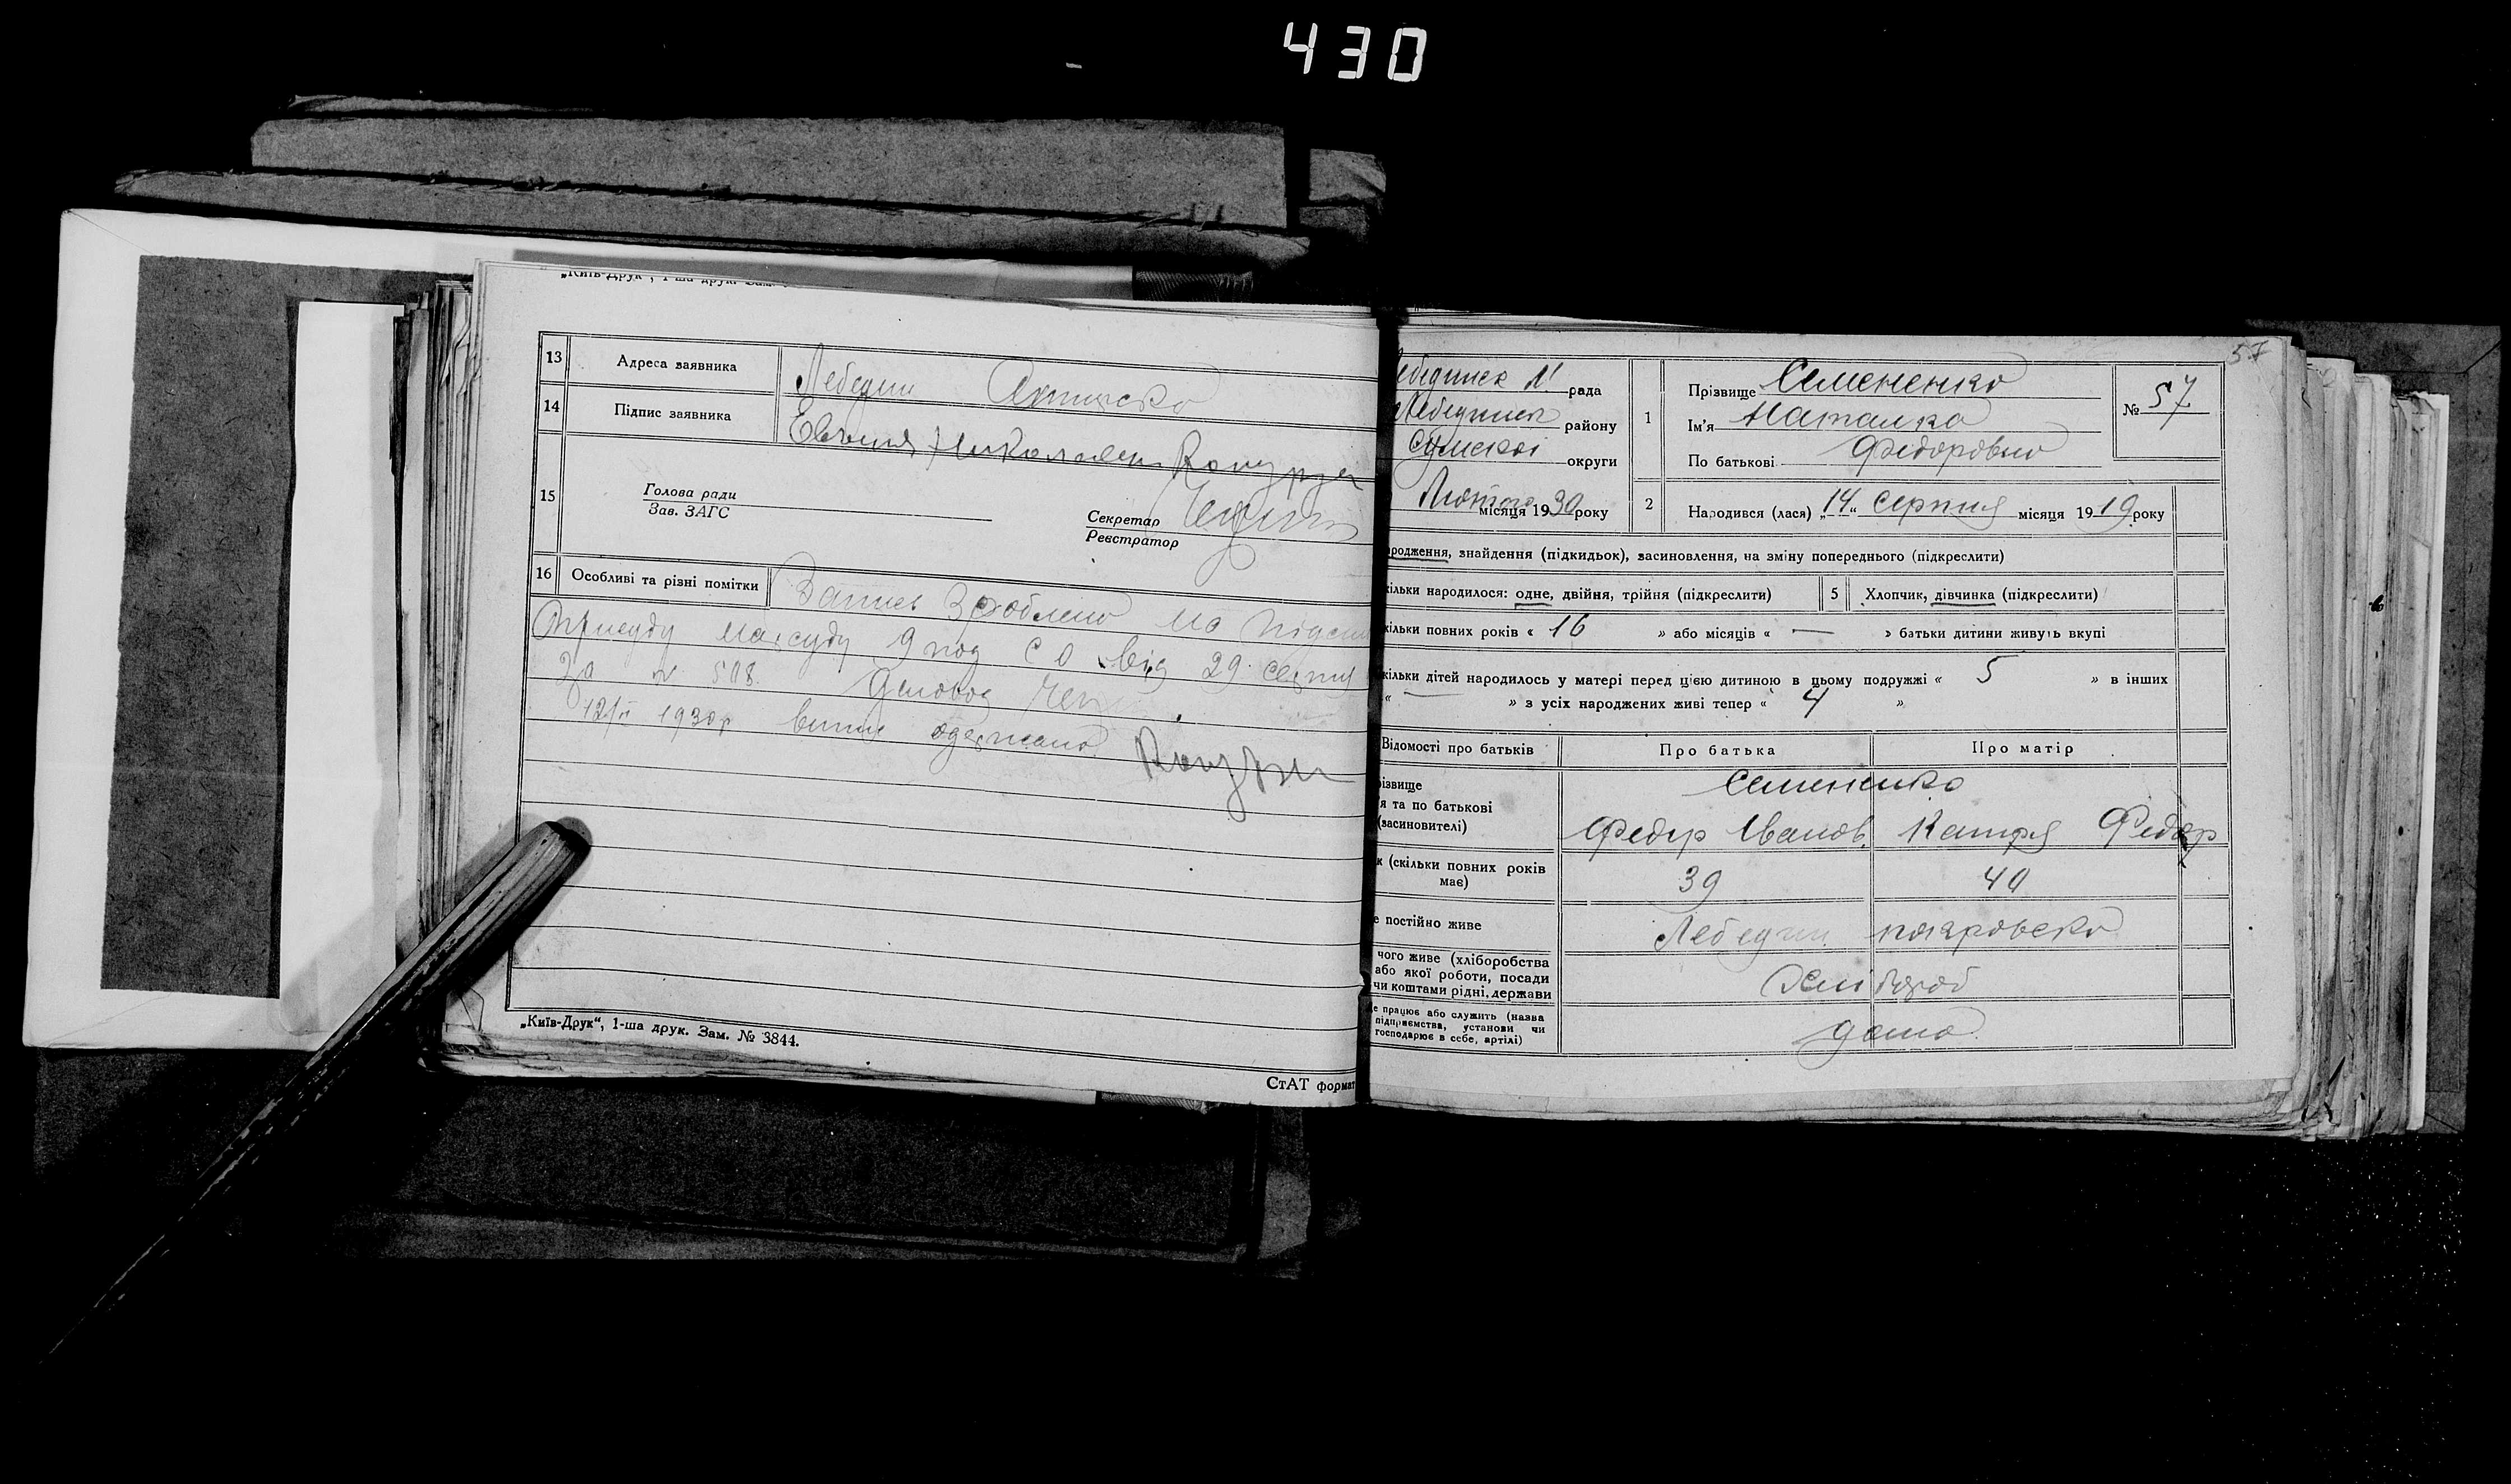 430
„Київ-Друк", 1-ша друк. Зам.
13 Адреса заявника Лебедин
14 Підпис заявника Евгения Николаевна
15 Голова ради
Зав. ЗАГС
Секретар
Реєстратор
16 Особливі та різні помітки Запись Зроблено на
Присуду нарсуду 9 від 29 серпня
За № 508. Діловод
12/II 1930р одержано
„Київ-Друк", 1-ша друк. Зам. № 3844.
СтАТ формат
57
Лебединск рада
Лебединск району
Сумскої округи
Лютого місяця 1930 року
1 Прізвище Семененко
Ім'я Наталка
По батькові Федоровна
№ 57
2 Народився (лася) „14" серпня місяця 1919 року
родження, знайдення (підкидьок), засиновлення, на зміну попереднього (підкреслити)
кільки народилося: одне, двійня, трійня (підкреслити) 5 Хлопчик, дівчинка (підкреслити)
кільки повних років « 16 » або місяців « — » батьки дитини живуть вкупі
кільки дітей народилось у матері перед цією дитиною в цьому подружжі « 5 » в інших
« — » з усіх народжених живі тепер « 4 »
Відомості про батьків Про батька Про матір
різвище
я та по батькові
(засиновителі)
Семененко
Федір Іванов. Катря Федор
к (скільки повних років має) 39 40
е постійно живе Лебедин покровско
чого живе (хліборобства
або якої роботи, посади
чи коштами рідні, держави
Хлібороб
е працює або служить (назва
підприємства, установи чи
господарює в себе, артілі)
дома